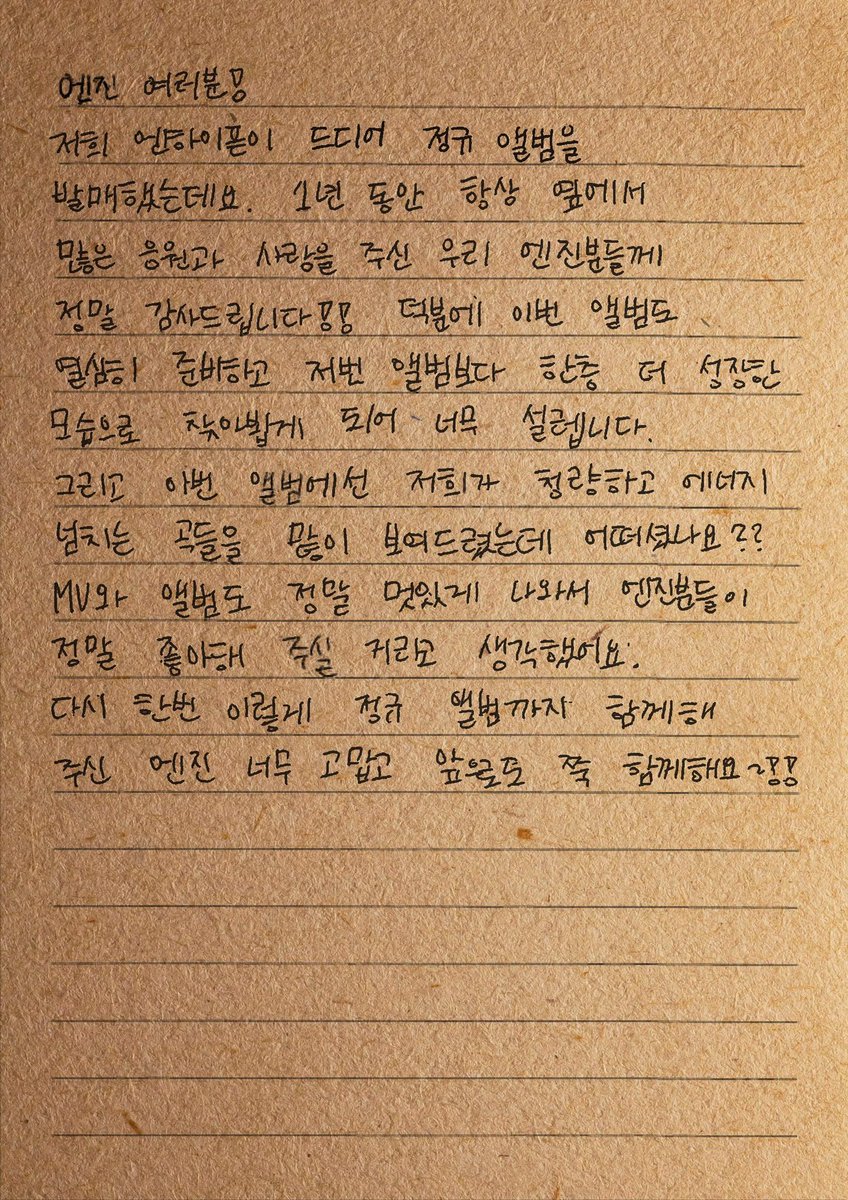 엔진 여러분!
저희 엔하이픈이 드디어 정규 앨범을
발매했는데요. 1년 동안 항상 옆에서
많은 응원과 사랑을 주신 우리 엔진분들께
정말 감사드립니다!! 덕분에 이번 앨범도
열심히 준비하고 저번 앨범보다 한층 더 성장한
모습으로 찾아뵙게 되어 너무 설렙니다.
그리고 이번 앨범에선 저희가 청량하고 에너지
넘치는 곡들을 많이 보여드렸는데 어떠셨나요??
MV와 앨범도 정말 멋있게 나와서 엔진분들이
정말 좋아해 주실 거라고 생각했어요.
다시 한번 이렇게 정규 앨범까지 함께해
주신 엔진 너무 고맙고 앞으로도 쭉 함께해요~!!